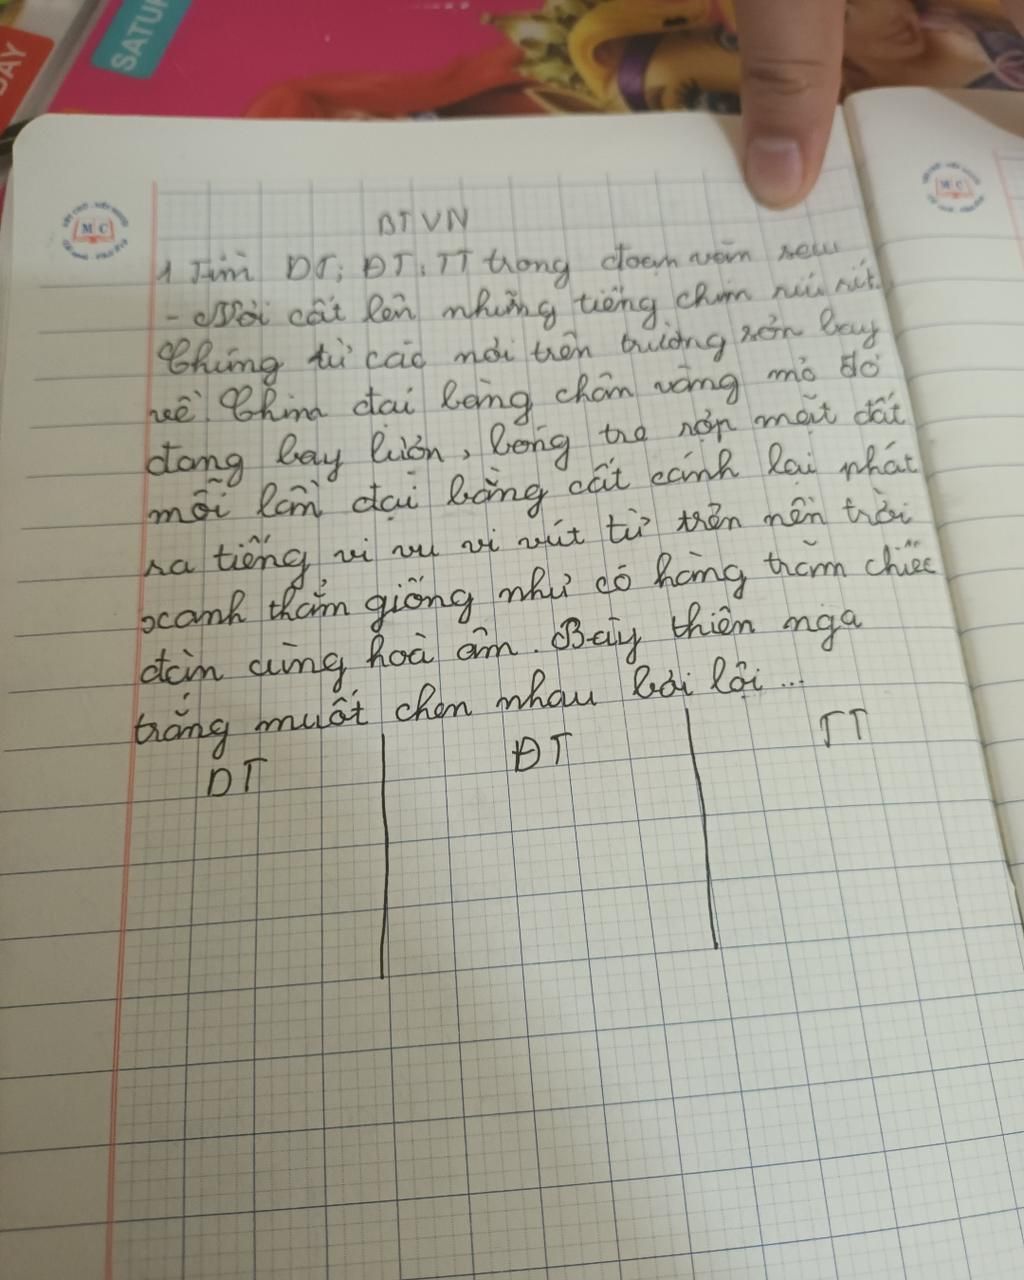 SATUR
DAY
M C
M C
BTVN
1 Tìm DT; ĐT; TT trong đoạn văn sau
- Rồi cất lên những tiếng chim ríu rít.
Chúng từ các nơi trên trường sơn bay
về. Chim đại bàng chân vàng mỏ đỏ
đang bay lượn, bóng trả rợp mặt đất
mỗi lần đại bàng cất cánh lại phát
ra tiếng vi vu vi vút từ trên nền trời
xanh thẳm giống như có hàng trăm chiếc
đàn cùng hoà âm. Bầy thiên nga
trắng muốt chen nhau bơi lội ...
DT ĐT TT